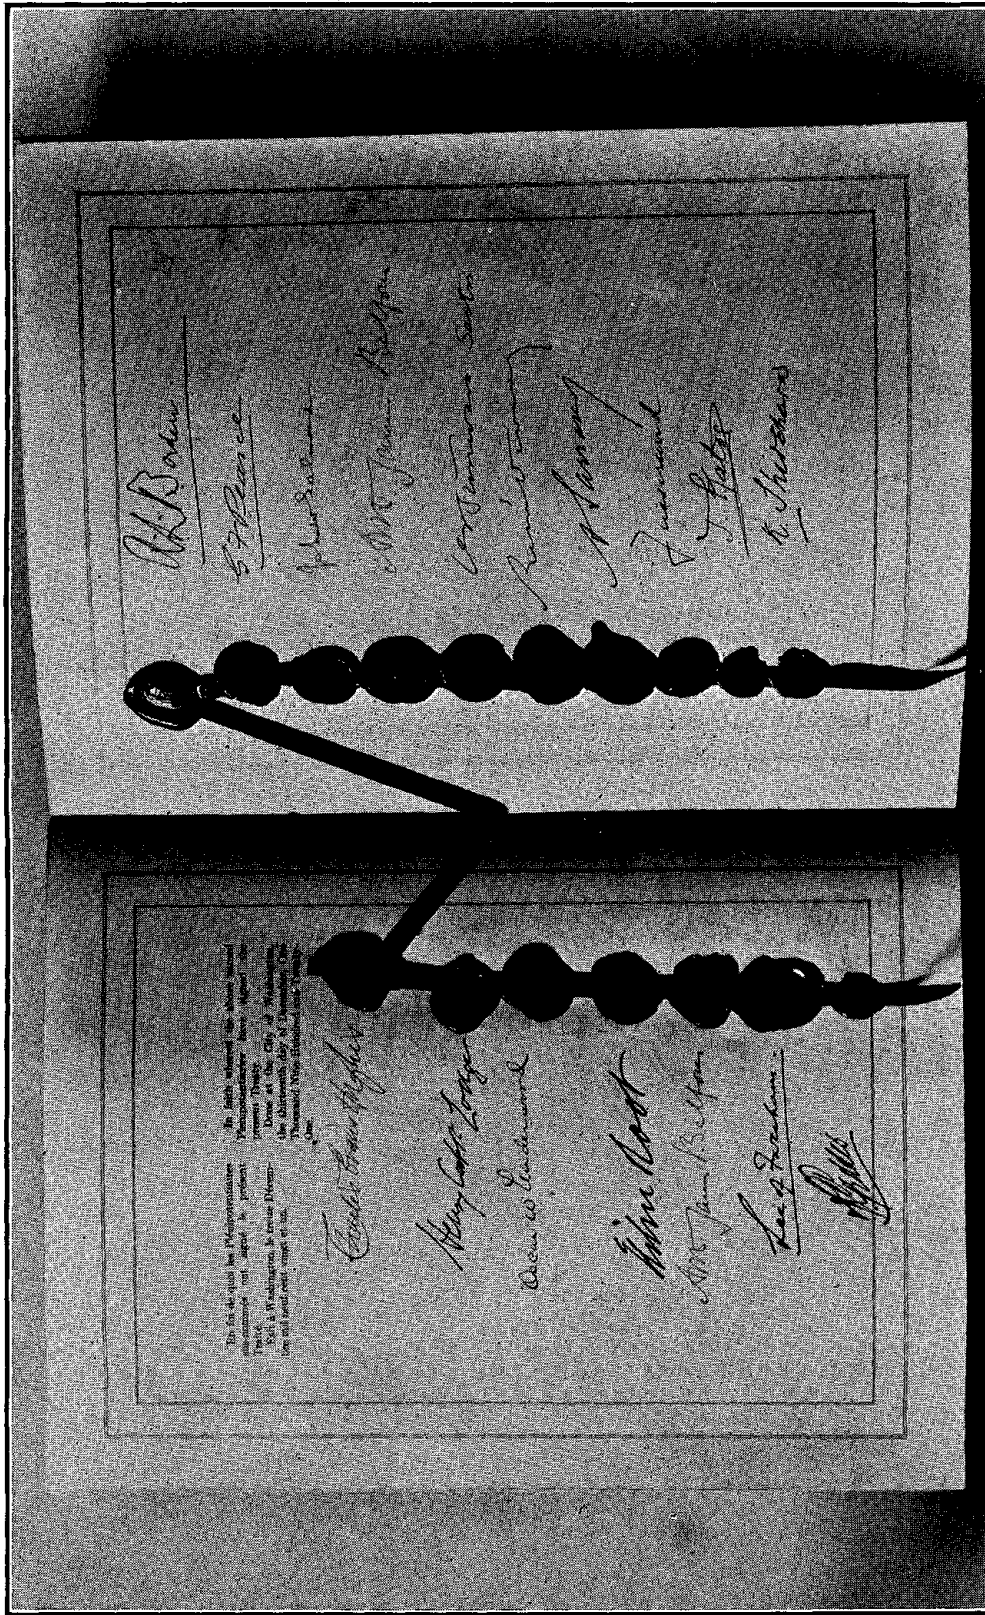 En foi de quoi les Plénipotentiaires
sus-nommés ont signé le présent
Traité.
Fait à Washington, le treize Décem-
bre mil neuf cent vingt et un.
In faith whereof the above named
Plenipotentiaries have signed the
present Treaty.
Done at the City of Washington,
the thirteenth day of December, One
Thousand Nine Hundred and Twenty-
One.
Charles Evans Hughes
Henry Cabot Lodge
Oscar W Underwood
Elihu Root
Arthur James Balfour
Lee of Fareham.
R L Borden
G F Pearce
John W Salmond
Arthur James Balfour
Srinivasa Sastri
René Viviani
A Sarraut
Jusserand
T Kato
K. Shidehara